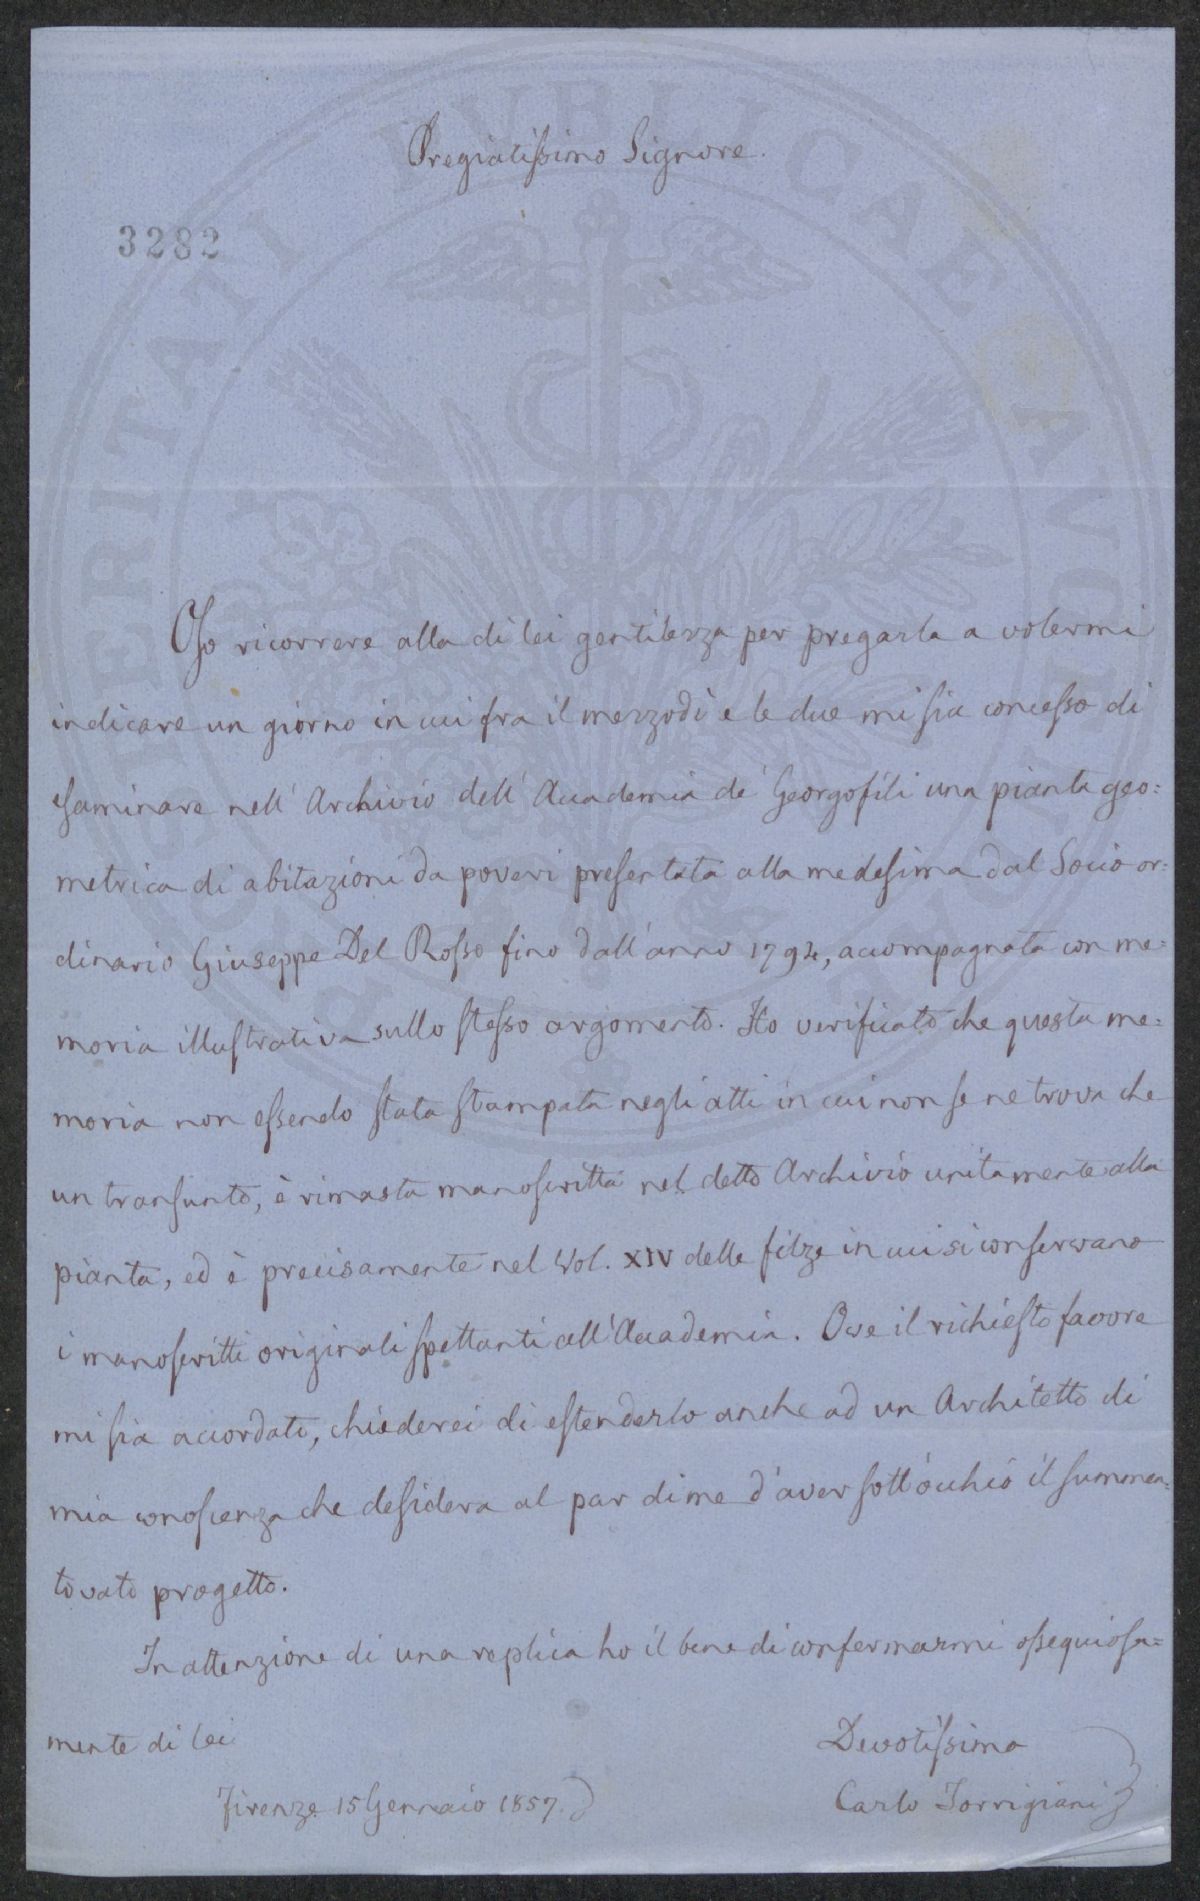 Pregiatissimo Signore.
3282
Oso ricorrere alla di lei gentilezza per pregarla a volermi
indicare un giorno in cui fra il mezzodì e le due mi sia concesso di
esaminare nell' Archivio dell' Accademia de' Georgofili una pianta geo=
metrica di abitazioni da poveri presentata alla medesima dal Socio or=
dinario Giuseppe Del Rosso fino dall' anno 1794, accompagnata con me=
moria illustrativa sullo stesso argomento. Ho verificato che questa me=
moria non essendo stata stampata negli atti in cui non se ne trova che
un transunto, è rimasta manoscritta nel detto Archivio unitamente alla
pianta, ed è precisamente nel Vol. XIV delle filze in cui si conservano
i manoscritti originali spettanti all' Accademia. Ove il richiesto favore
mi sia accordato, chiederei di estenderlo anche ad un Architetto di
mia conoscenza che desidera al par di me d'aver sott'occhio il summen=
tovato progetto.
In attenzione di una replica ho il bene di confermarmi ossequiosa=
mente di lei
Devotissimo
Firenze 15 Gennaio 1857.
Carlo Torrigiani
PROSPERITATI PUBLICAE AUGENDAE